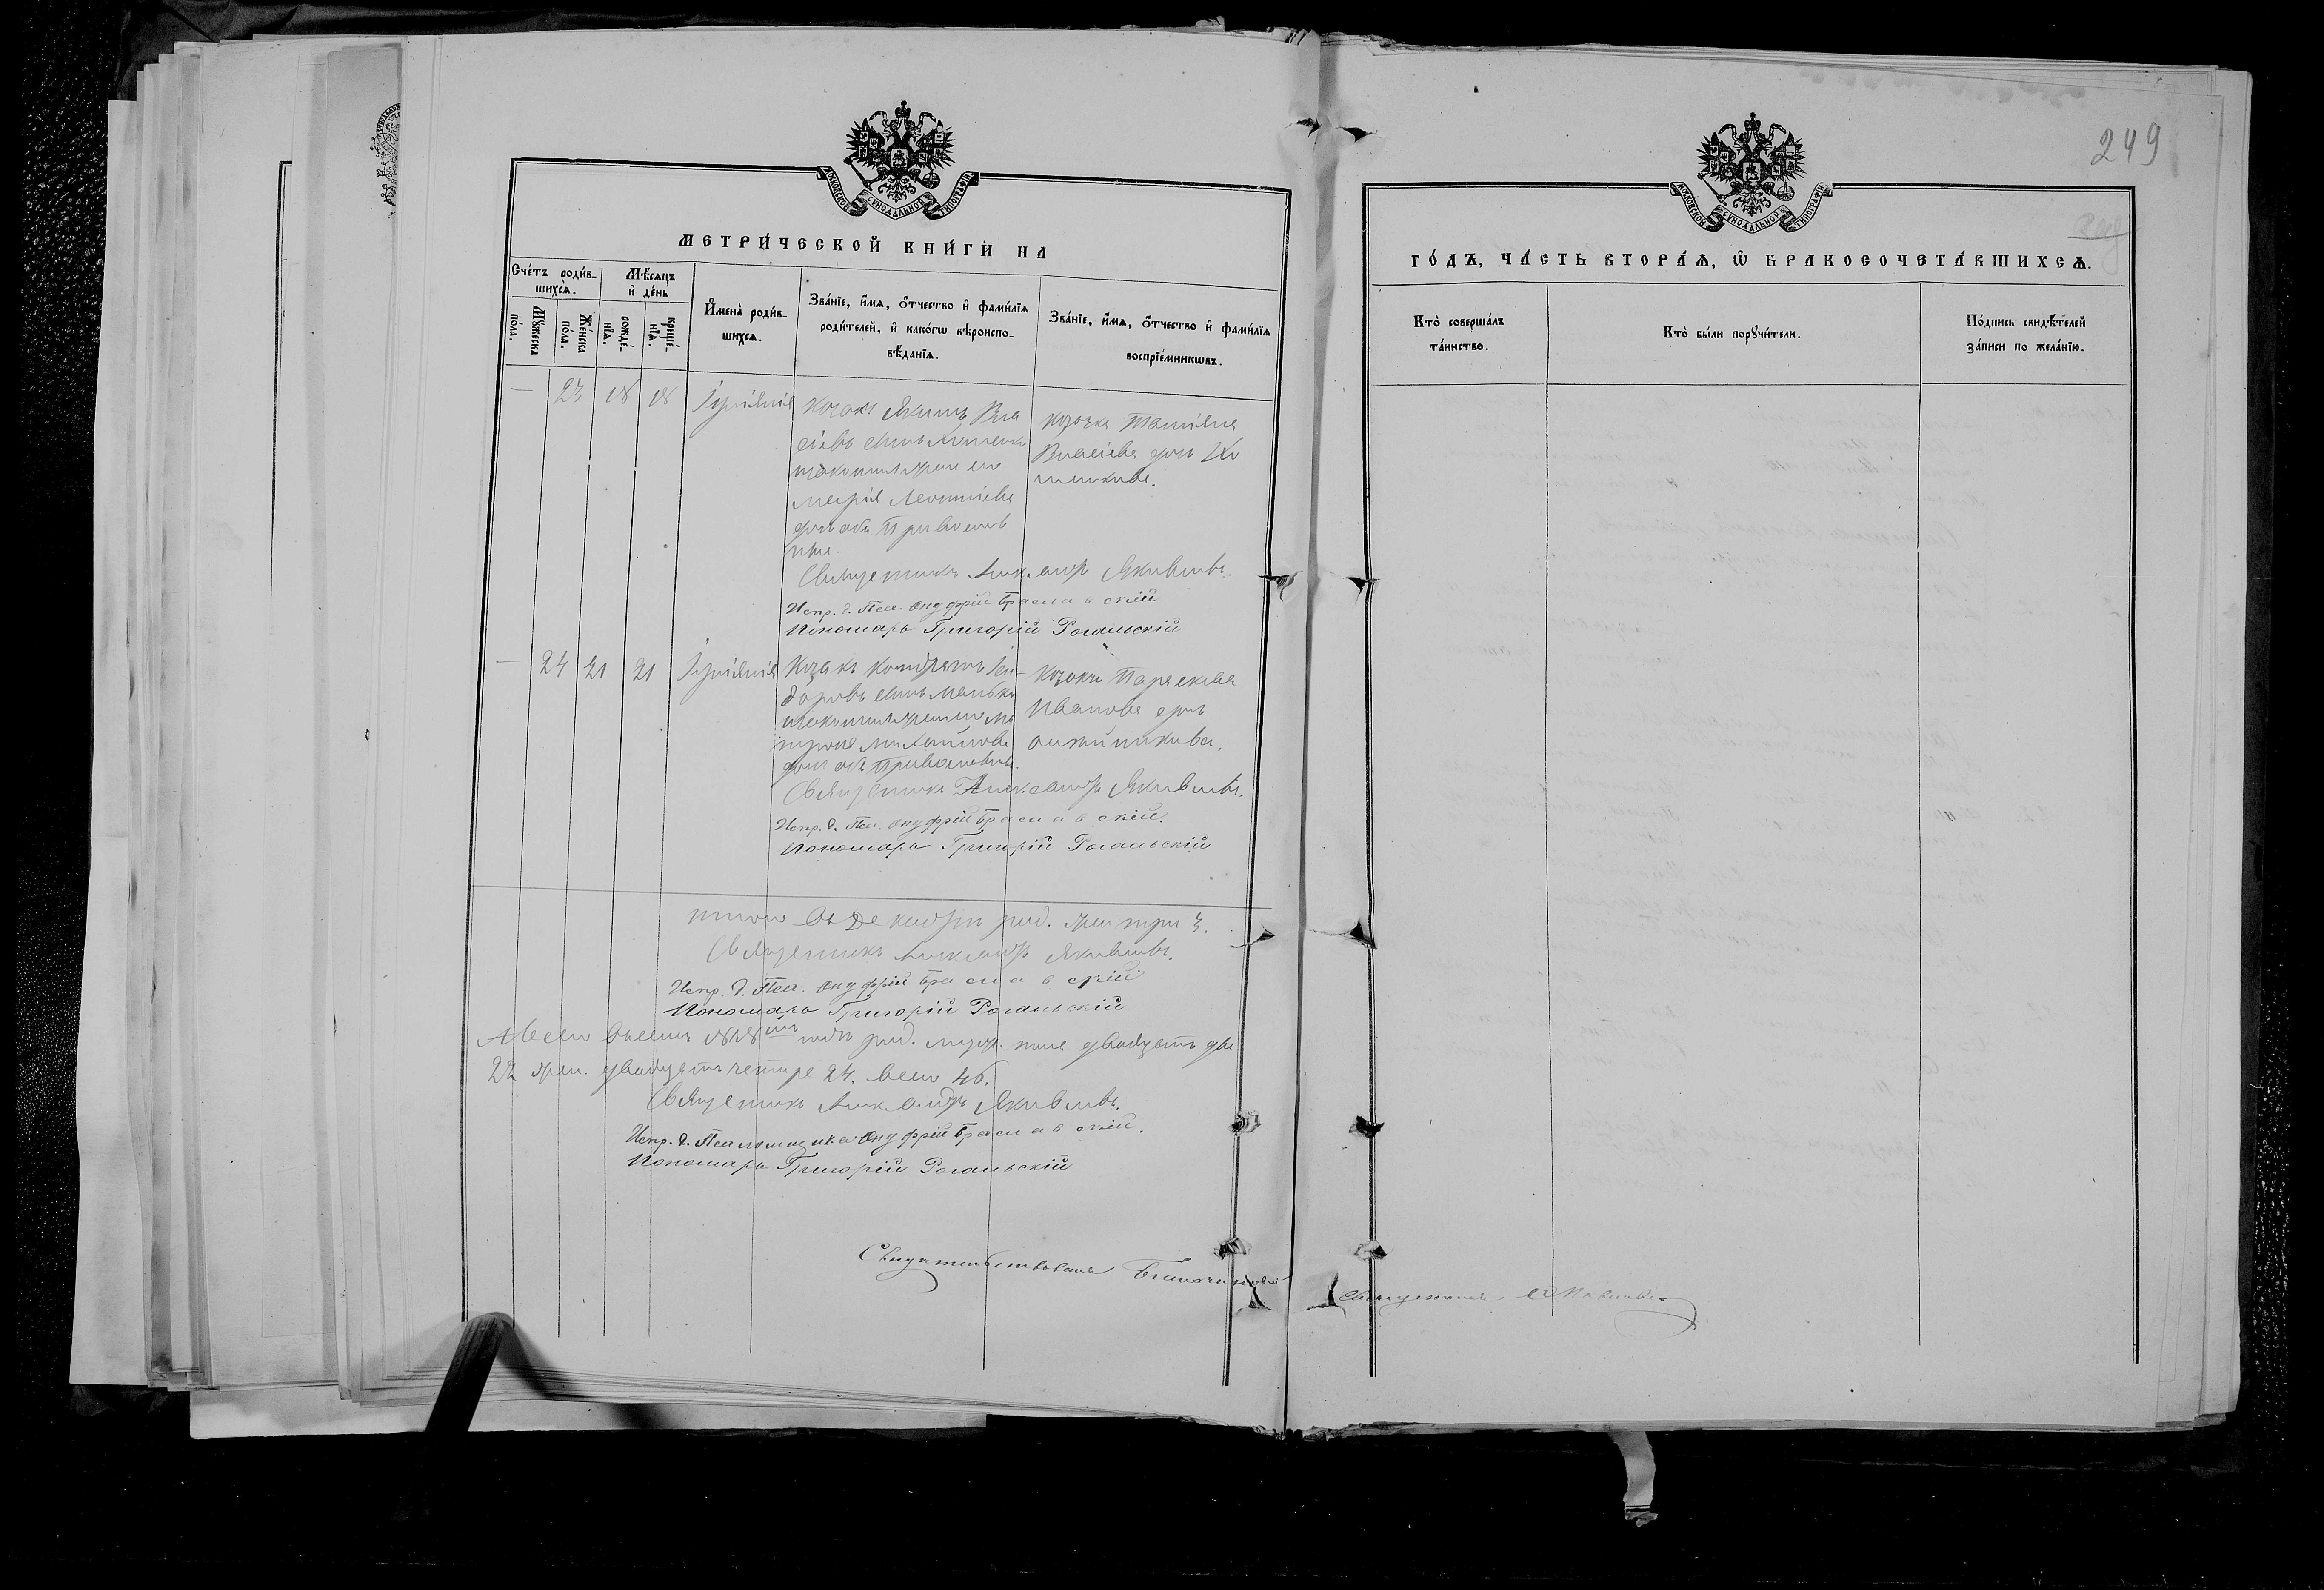 МОСКОВСКОЙ СУНОДАЛЬНОЙ ТИПОГРАФІИ
МЕТРИ́ЧЕСКОЙ КНИ́ГИ НА
Сче́тъ роди́вшихсѧ.
Мѣ́сяцъ и҆ де́нь
Мꙋ́жеска по́ла.
Же́нска по́ла.
рожде́нїѧ.
креще́нїѧ.
И҆мена̀ роди́вшихсѧ.
Зва́нїе, и҆́мѧ, ѻ҆́тчество и҆ фами́лїѧ
роди́телей, и҆ како́гѡ вѣроиспо-
вѣ́данїѧ.
Зва́нїе, и҆́мѧ, ѻ҆́тчество и҆ фами́лїѧ
воспрїе́мникѡвъ.
— 23 18 18
Козакъ Якимъ Вла
сіевъ сынъ
и законная жена его
Марія Леонтіева
дочь оба Православ
ные.
козачка Татіяна
Власіева дочь
Священникъ Александръ
Испр. д. Псал. Онуфрій Браславскій
Пономарь Григорій Рогальскій
— 24 21 21
Козакъ Кондратъ Іси-
доровъ сынъ
и законная жена его Ма
трона Михайлова
дочь оба Православные.
козачка Параскева
Иванова дочь
Священникъ Александръ
Испр. д. Псал. Онуфрій Браславскій.
Пономарь Григорій Рогальскій
итого въ Декабрѣ род. жен. три 3.
Священникъ Александръ
Испр. д. Псал. Онуфрій Браславскій
Пономарь Григорій Рогальскій
А всего въ семъ годѣ род. муж. пола двадцать два
22 жен. двадцать четыре 24. всего 46.
Священникъ Александръ
Испр. д. Псаломщика Онуфрій Браславскій.
Пономарь Григорій Рогальскій
Свидетельствовалъ Благочинный
249
МОСКОВСКОЙ СУНОДАЛЬНОЙ ТИПОГРАФІИ
ГО́ДЪ, ЧА́СТЬ ВТОРА́Ѧ, Ѽ БРАКОСОЧЕТА́ВШИХСѦ.
Кто̀ соверша́лъ
та́инство.
Кто̀ бы́ли порꙋчи́тели.
По́дпись свидѣ́телей
за́писи по жела́нїю.
Священникъ